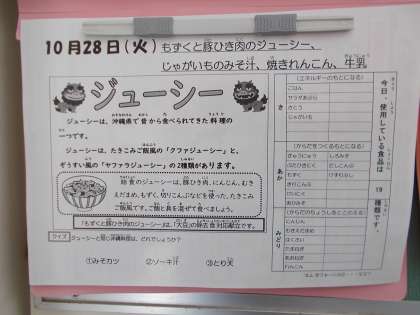 10月28日(火) もずくと豚ひき肉のジューシー、
じゃがいものみそ汁、焼きれんこん、牛乳
ジューシー
ジューシーは、沖縄県で昔から食べられてきた料理の
一つです。
ジューシーは、たきこみご飯風の「クファジューシー」と、
ぞうすい風の「ヤファラジューシー」の2種類があります。
給食のジューシーは、豚ひき肉、にんじん、むき
えだまめ、もずく、切りこんぶなどを使った、たきこみ
ご飯風です。ご飯と具を混ぜて食べましょう。
「もずくと豚ひき肉のジューシー」は、「大豆」の除去食対応献立です。
クイズ
ジューシーと同じ沖縄料理は、どれでしょうか?
①みそカツ ②ソーキ汁 ③とり天
今日、使用している食品は 19 種類です。
き
(エネルギーのもとになる)
ごはん
サラダあぶら
さとう
じゃがいも
あか
(からだをつくるもとになる)
ぎゅうにゅう しろみそ
ぶたひきにく
もずく
きりこんぶ
みどり
(からだのちょうしをととのえる)
にんじん
むきえだまめ
はくさい
たまねぎ
れんこん